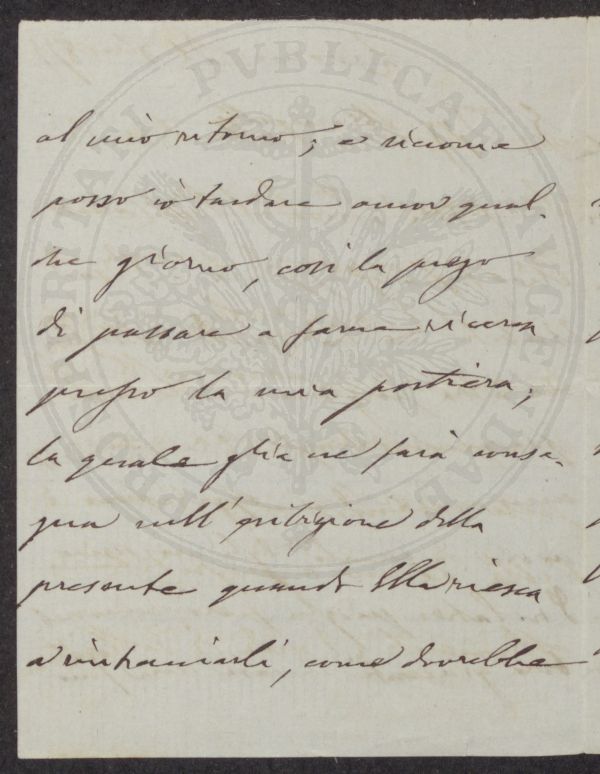 PVBLICAE
al mio ritorno; e siccome
posso io tardare ancor qual-
che giorno, così la prego
di passare a farne ricerca
presso la mia portiera;
la quale gliene farà conse-
gna sull'esibizione della
presente quando Ella riesca
a rintracciarli, come dovrebbe